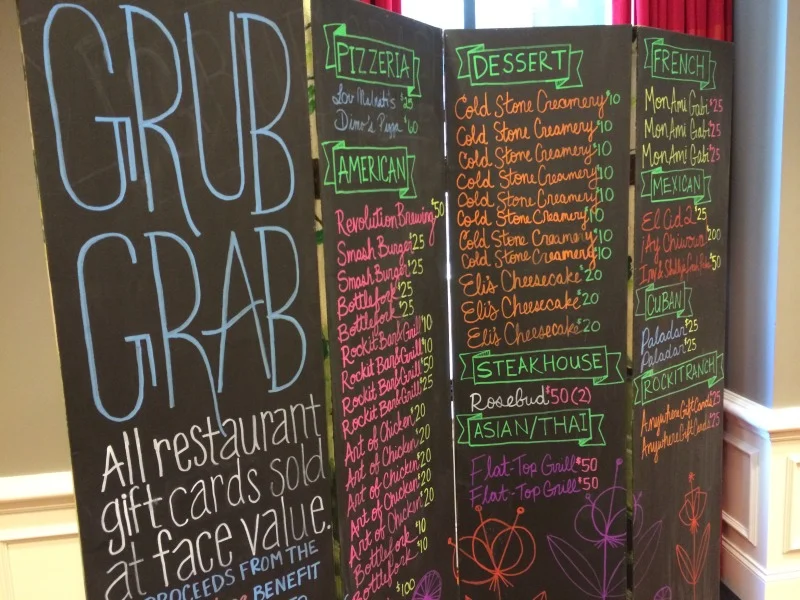 GRUB
GRAB
All restaurant
gift cards sold
at face value.
PROCEEDS FROM THE
BENEFIT
TO
PIZZERIA
Lou Malnati's $25
Dino's Pizza $60
AMERICAN
Revolution Brewing $50
Smash Burger $25
Smash Burger $25
Bottlefork $25
Bottlefork $25
Rockit Bar & Grill $10
Rockit Bar & Grill $10
Rockit Bar & Grill $50
Rockit Bar & Grill $25
Art of Chicken $20
Art of Chicken $20
Art of Chicken $20
Art of Chicken $20
Art of Chicken $20
Bottlefork $10
Bottlefork $10
$100
DESSERT
Cold Stone Creamery $10
Cold Stone Creamery $10
Cold Stone Creamery $10
Cold Stone Creamery $10
Cold Stone Creamery $10
Cold Stone Creamery $10
Cold Stone Creamery $10
Cold Stone Creamery $10
Eli's Cheesecake $20
Eli's Cheesecake $20
Eli's Cheesecake $20
STEAKHOUSE
Rosebud $50 (2)
ASIAN/THAI
Flat-Top Grill $50
Flat-Top Grill $50
FRENCH
Mon Ami Gabi $25
Mon Ami Gabi $25
Mon Ami Gabi $25
MEXICAN
El Cid 2 $25
¡Ay Chiwowa! $200
$50
CUBAN
Paladar $25
Paladar $25
ROCKIT RANCH
Anywhere Gift Card $25
Anywhere Gift Card $25